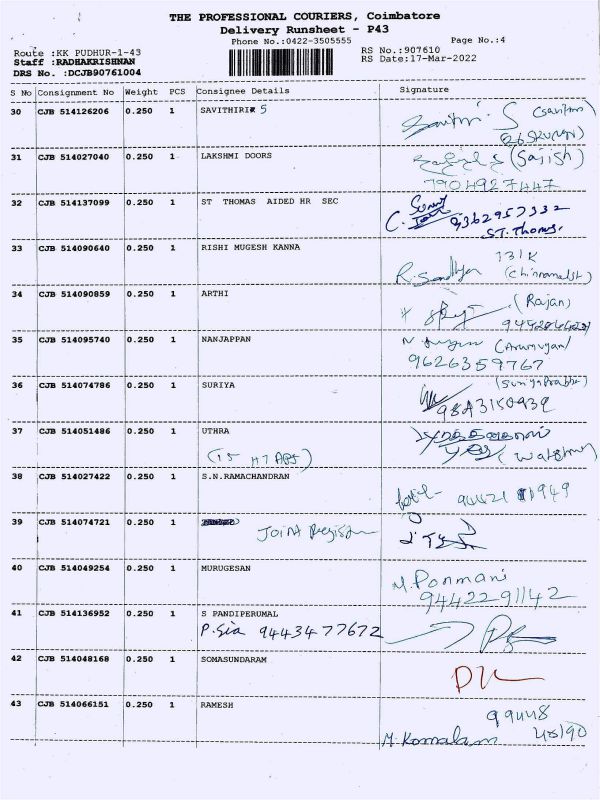 THE PROFESSIONAL COURIERS, Coimbatore
Delivery Runsheet - P43
Phone No.:0422-3505555 Page No.:4
Route :KK PUDHUR-1-43 RS No.:907610
Staff :RADHAKRISHNAN RS Date:17-Mar-2022
DRS No. :DCJB90761004
S No Consignment No Weight PCS Consignee Details Signature
30 CJB 514126206 0.250 1 SAVITHIRI S
31 CJB 514027040 0.250 1 LAKSHMI DOORS (Sajish)
7904927447
32 CJB 514137099 0.250 1 ST THOMAS AIDED HR SEC
9362957332
ST.Thomas
33 CJB 514090640 0.250 1 RISHI MUGESH KANNA
R. Sandhya
34 CJB 514090859 0.250 1 ARTHI (Rajan)
35 CJB 514095740 0.250 1 NANJAPPAN
9626359767
36 CJB 514074786 0.250 1 SURIYA
9843150939
37 CJB 514051486 0.250 1 UTHRA
38 CJB 514027422 0.250 1 S.N.RAMACHANDRAN
94421 1949
39 CJB 514074721 0.250 1
Joint
40 CJB 514049254 0.250 1 MURUGESAN
M. Ponmani
9442291142
41 CJB 514136952 0.250 1 S PANDIPERUMAL
P.Sia 9443477672
42 CJB 514048168 0.250 1 SOMASUNDARAM
43 CJB 514066151 0.250 1 RAMESH
99448
48190
M. Komalam